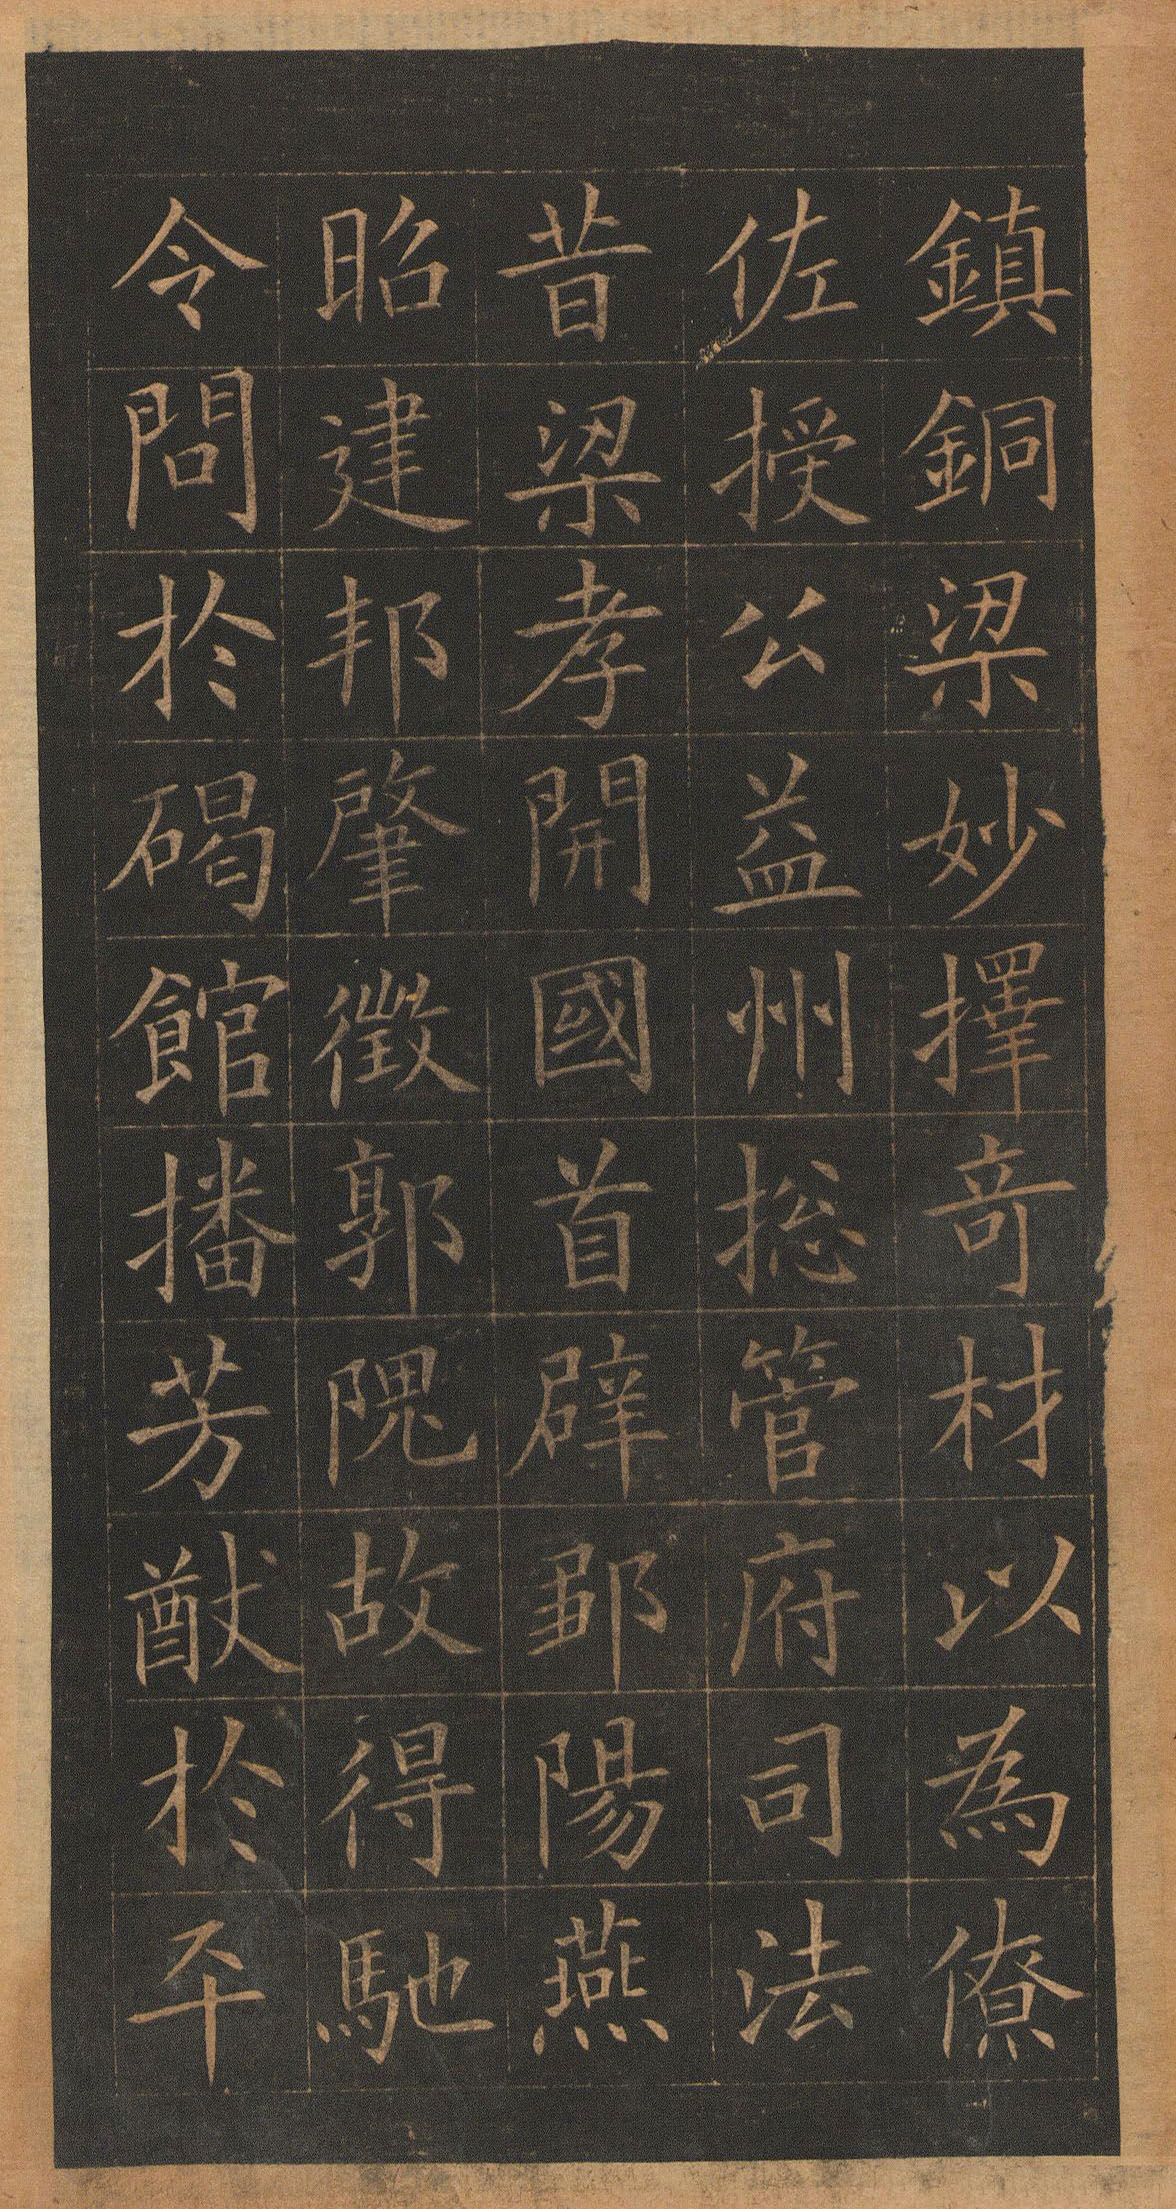 鎮銅梁妙擇竒材以為僚
佐授公益州揔管府司法
昔梁孝開國首辟鄒陽燕
昭建邦肇徵郭隗故得馳
令問於碣館播芳猷於平